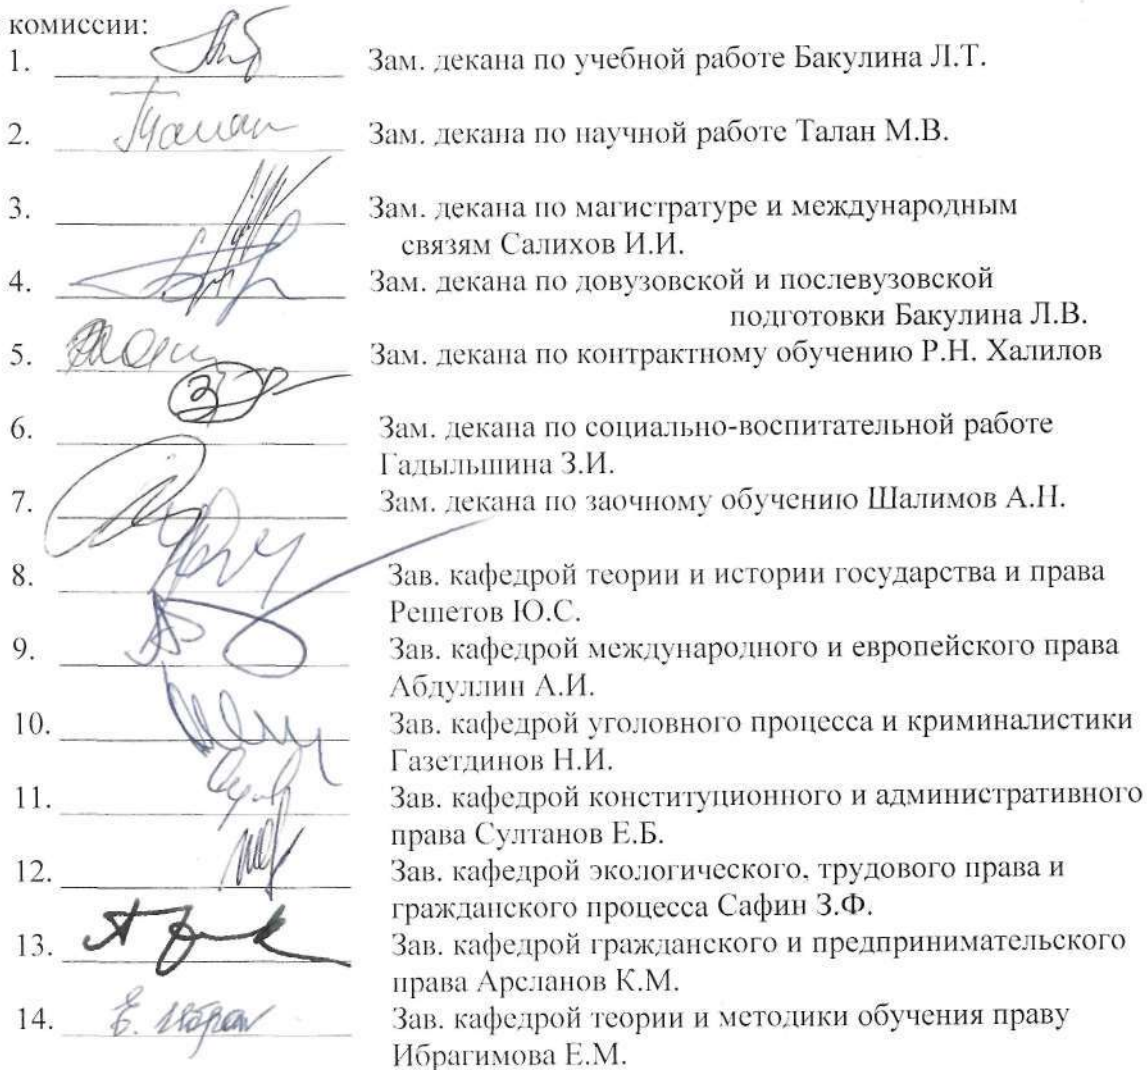 комиссии:
1. Зам. декана по учебной работе Бакулина Л.Т.
2. Зам. декана по научной работе Талан М.В.
3. Зам. декана по магистратуре и международным
связям Салихов И.И.
4. Зам. декана по довузовской и послевузовской
подготовки Бакулина Л.В.
5. Зам. декана по контрактному обучению Р.Н. Халилов
6. Зам. декана по социально-воспитательной работе
Гадыльшина З.И.
7. Зам. декана по заочному обучению Шалимов А.Н.
8. Зав. кафедрой теории и истории государства и права
Решетов Ю.С.
9. Зав. кафедрой международного и европейского права
Абдуллин А.И.
10. Зав. кафедрой уголовного процесса и криминалистики
Газетдинов Н.И.
11. Зав. кафедрой конституционного и административного
права Султанов Е.Б.
12. Зав. кафедрой экологического, трудового права и
гражданского процесса Сафин З.Ф.
13. Зав. кафедрой гражданского и предпринимательского
права Арсланов К.М.
14. Зав. кафедрой теории и методики обучения праву
Ибрагимова Е.М.